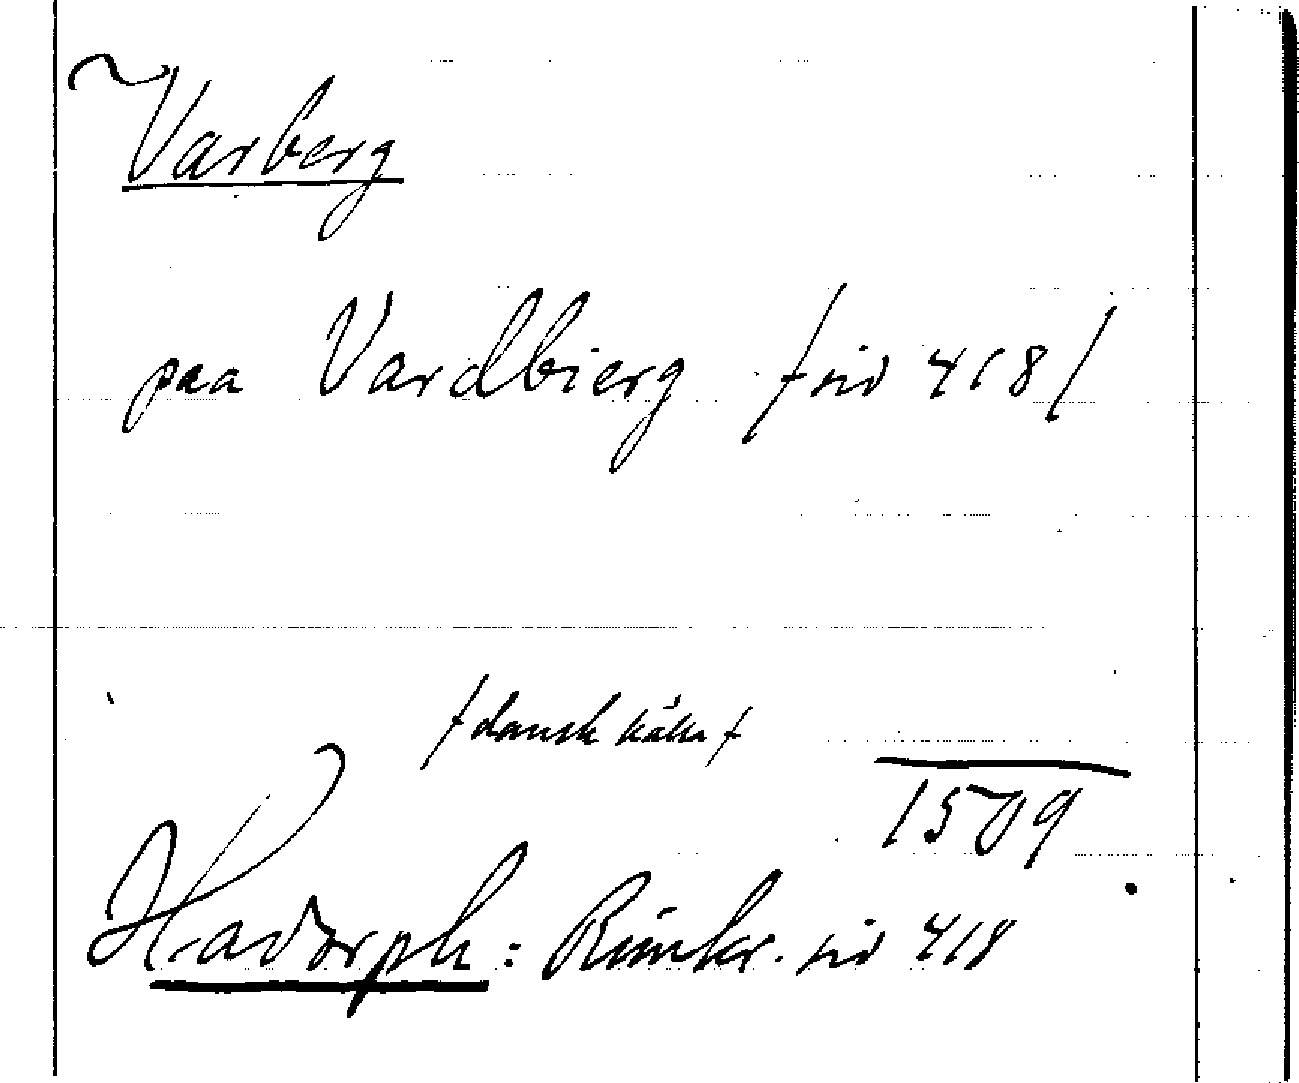 Varberg
paa Vardbierg /sid 418/
/dansk källa/
1509
Hadorph: Rimkr. sid 418